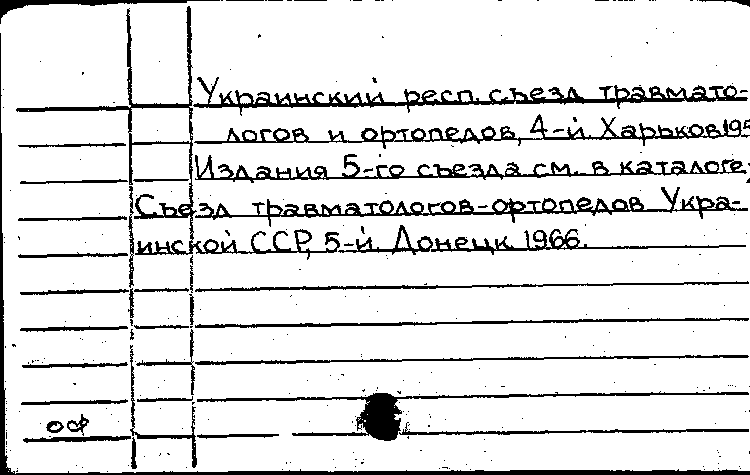 Украинский респ. съезд травмато-
логов и ортопедов, 4-й. Харьков
Издания 5-го съезда см. в каталоге:
Съезд травматологов-ортопедов Укра-
инской ССР, 5-й. Донецк. 1966.
ОФ